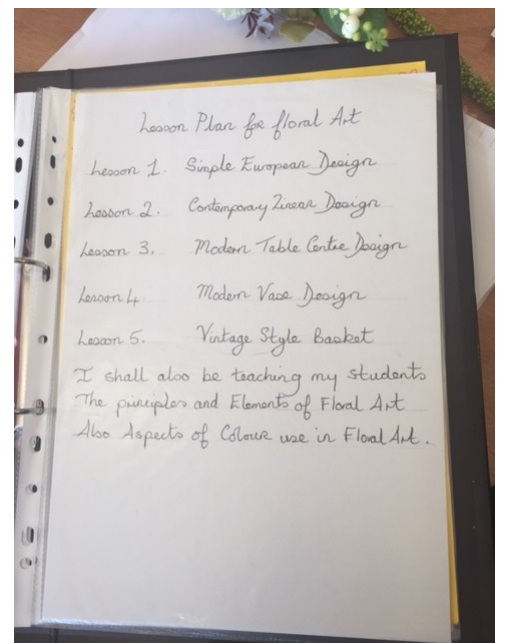 Lesson Plan for floral Art
Lesson 1. Simple European Design
Lesson 2. Contemporary Linear Design
Lesson 3. Modern Table Centre Design
Lesson 4 Modern Vase Design
Lesson 5. Vintage Style Basket
I shall also be teaching my students
The principles and Elements of Floral Art
Also Aspects of Colour use in Floral Art.